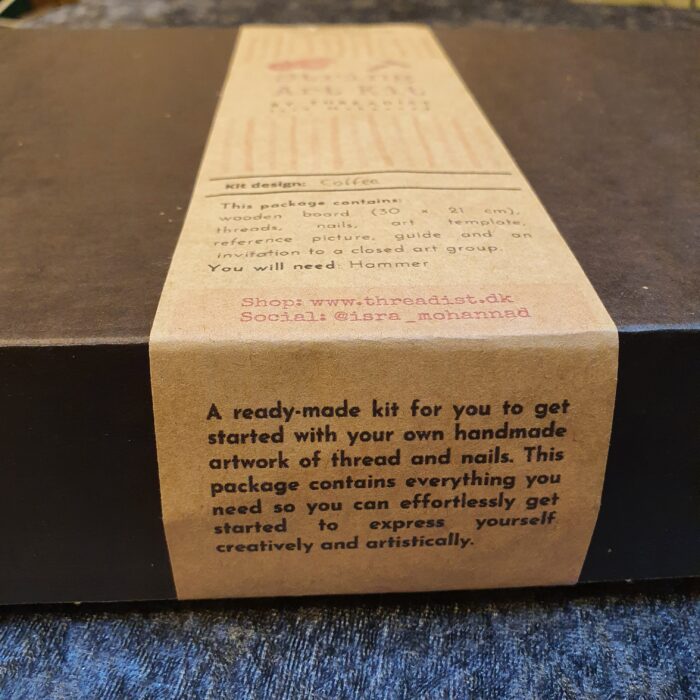 String
Art Kit
BY THREADIST
Isra Mohannad
Kit design: Coffee
This package contains:
wooden board (30 x 21 cm),
threads, nails, art template,
reference picture, guide and an
invitation to a closed art group.
You will need: Hammer
Shop: www.threadist.dk
Social: @isra_mohannad
A ready-made kit for you to get
started with your own handmade
artwork of thread and nails. This
package contains everything you
need so you can effortlessly get
started to express yourself
creatively and artistically.